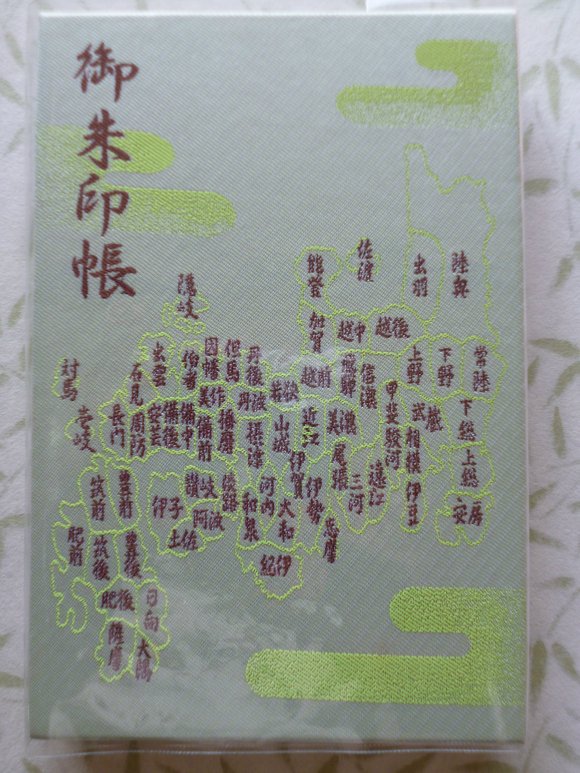 御朱印帳
陸奥
出羽
佐渡
能登
加賀
越中
越後
越前
飛騨
信濃
上野
下野
常陸
下総
上総
安房
武蔵
相模
伊豆
甲斐
駿河
遠江
三河
尾張
美濃
近江
若狭
山城
伊賀
伊勢
志摩
大和
河内
和泉
紀伊
摂津
丹波
丹後
但馬
因幡
伯耆
出雲
隠岐
石見
美作
播磨
備前
備中
備後
安芸
周防
長門
淡路
讃岐
阿波
伊予
土佐
対馬
壱岐
筑前
豊前
肥前
筑後
豊後
肥後
日向
薩摩
大隅